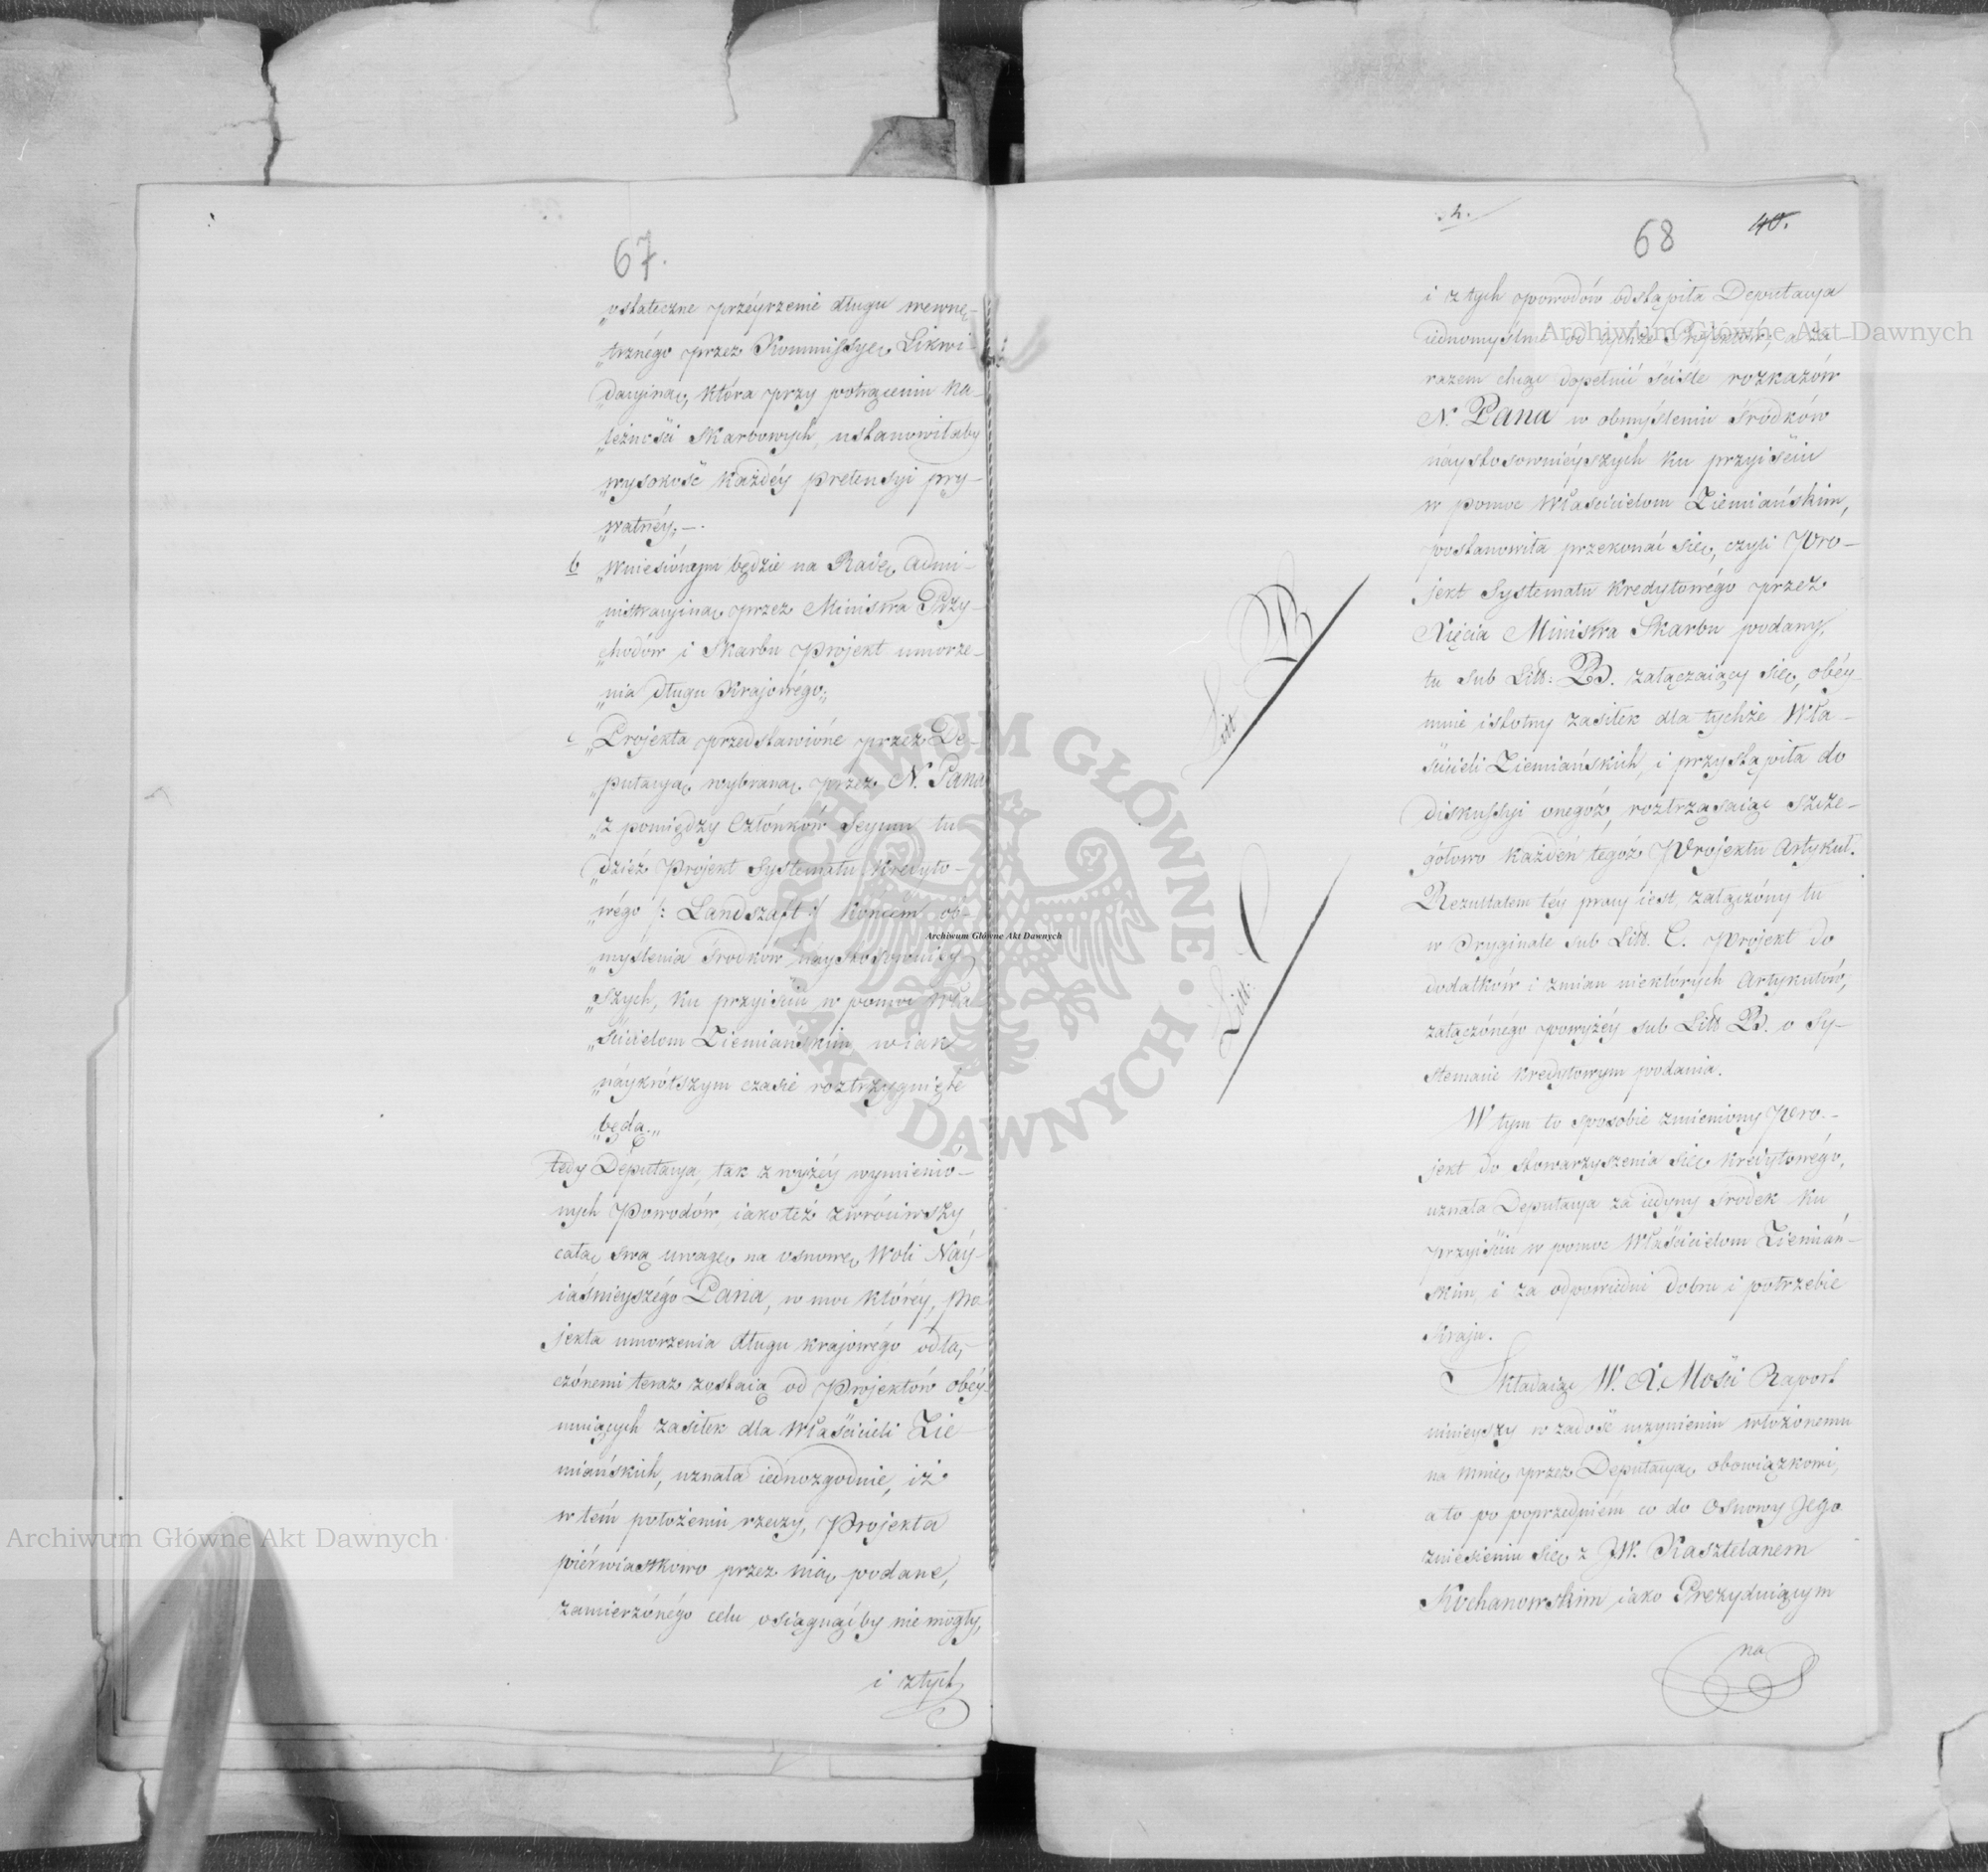 67.
„ostateczne przéyrzenie długu wewnę-
„trznégo przez Kommissyę Likwi-
„dacyiną, która przy potrąceniu na-
„leżności skarbowych, ustanowiłaby
„wysokość każdéy pretensyi pry-
„watnéy„ —.
b „Wniesiónym będzie na Radę Admi-
„nistracyiną przez Ministra Przy-
„chodów i Skarbu Projekt umorze-
„nia długu Krajowégo„
c „Projekta przedstawióne przez De-
„putacyą wybraną przez N. Pana
„z pomiędzy Członków Seymu tu-
„dzież Projekt Systematu Kredyto-
„wégo /: Landszaft :/ Końcem ob-
„myślenia środków náystosowniéy-
„szych, ku przyiściu w pomoc Wła-
„ścicielom Ziemiańskim w iak
„náykrótszym czasie roztrzygnięte
„będą.„
tedy Deputacya, tak z wyżéy wymienió-
nych Powodów, iakoteż zwróciwszy
całą swą uwagę na osnowę Woli Náy-
iaśnieyszégo Pana, w moc któréy, Pro-
jekta umorzenia długu krajowégo odłą-
czónemi teraz zostaią od Projektów obéy-
muiących zasiłek dla Właścicieli Zie-
miańskich, uznała iednozgodnie, iż
w tém położeniu rzeczy, Projekta
piérwiastkowo przez nią podane,
zamierzónégo celu osiągnąćby nie mogły,
i z tych
68
40.
i z tych powodów odstąpiła Deputacya
iednomyślnie od tychże Projektów; a za-
razem chcąc dopełnić ściśle rozkazów
N. Pana w obmyśleniu środków
náystosowniéyszych ku przyiściu
w pomoc Właścicielom Ziemiańskim,
postanowiła przekonać się, czyli Pro-
jekt Systematu Kredytowégo przez
Xięcia Ministra Skarbu podany,
tu sub Litt: B. załączaiący się, obéy-
muie istotny zasiłek dla tychże Wła-
ścicieli Ziemiańskich, i przystąpiła do
diskussyi onegóż, roztrząsaiąc szcze-
gółowo każdén tegóż Projektu Artykuł.
Rezultatem téy pracy iest, załączóny tu
w Oryginale sub Litt. C. Projekt do
dodatków i zmian niektórych Artykułów,
załączónégo powyżéy sub Litt B. o Sy-
stemacie Kredytowym podania.
W tym to sposobie zmieniony Pro-
jekt do stowarzyszenia się kredytowégo,
uznała Deputacya za iedyny środek ku
przyiściu w pomoc Właścicielom Ziemiań-
skim, i za odpowiedni dobru i potrzebie
Kraju.
Składaiąc W. X. Mości Raport
ninieyszy w zadość uczynieniu włożonemu
na mnie przez Deputacyą obowiązkowi,
a to po poprzedniém co do Osnowy Jego
zniesieniu się z JW. Kasztelanem
Kochanowskim iako Prezyduiącym
na
Litt. B
Litt. C
Archiwum Główne Akt Dawnych
Archiwum Główne Akt Dawnych
Archiwum Główne Akt Dawnych
ARCHIWUM GŁÓWNE • AKT DAWNYCH •